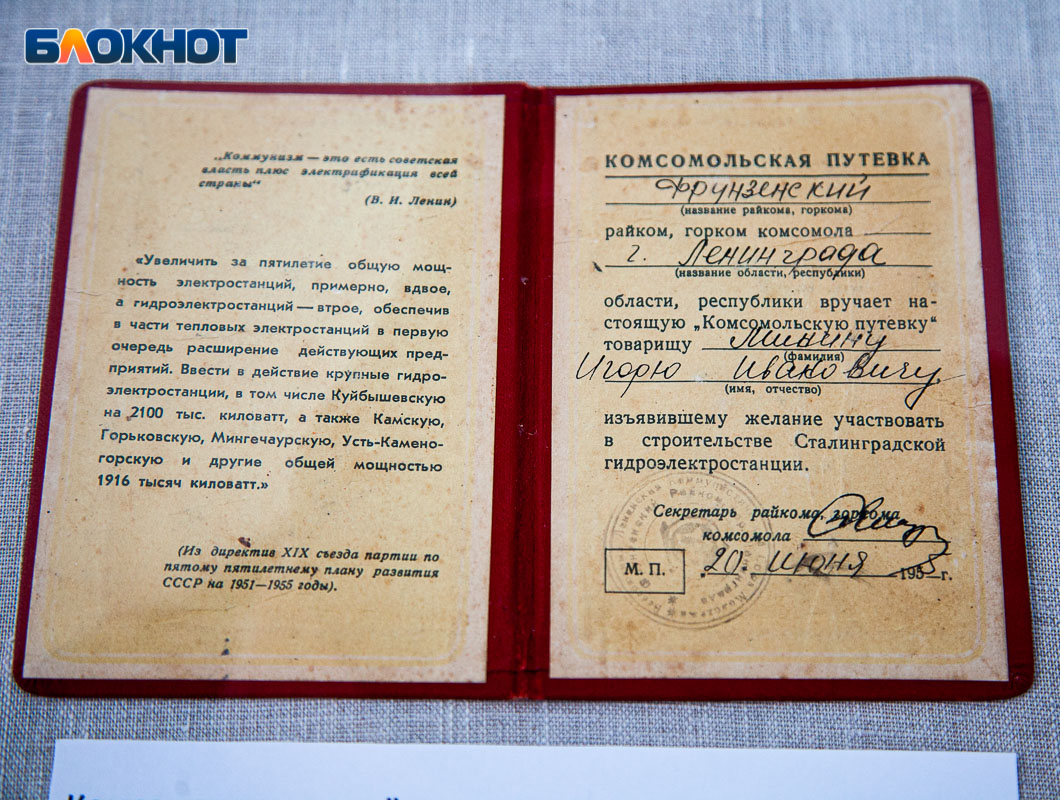 БЛОКНОТ
„Коммунизм — это есть советская
власть плюс электрификация всей
страны“
(В. И. Ленин)
«Увеличить за пятилетие общую мощ-
ность электростанций, примерно, вдвое,
а гидроэлектростанций — втрое, обеспечив
в части тепловых электростанций в первую
очередь расширение действующих пред-
приятий. Ввести в действие крупные гидро-
электростанции, в том числе Куйбышевскую
на 2100 тыс. киловатт, а также Камскую,
Горьковскую, Мингечаурскую, Усть-Камено-
горскую и другие общей мощностью
1916 тысяч киловатт.»
(Из директив XIX съезда партии по
пятому пятилетнему плану развития
СССР на 1951—1955 годы).
КОМСОМОЛЬСКАЯ ПУТЕВКА
Фрунзенский
(название райкома, горкома)
райком, горком комсомола
г. Ленинграда
(название области, республики)
области, республики вручает на-
стоящую „Комсомольскую путевку“
товарищу Минину
(фамилия)
Игорю Ивановичу
(имя, отчество)
изъявившему желание участвовать
в строительстве Сталинградской
гидроэлектростанции.
Секретарь райкома, горкома
комсомола
М. П.
„20 июня 195 г.